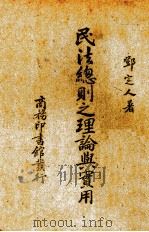 鄭定人著
民法總則之理論與實用
商務印書館發行